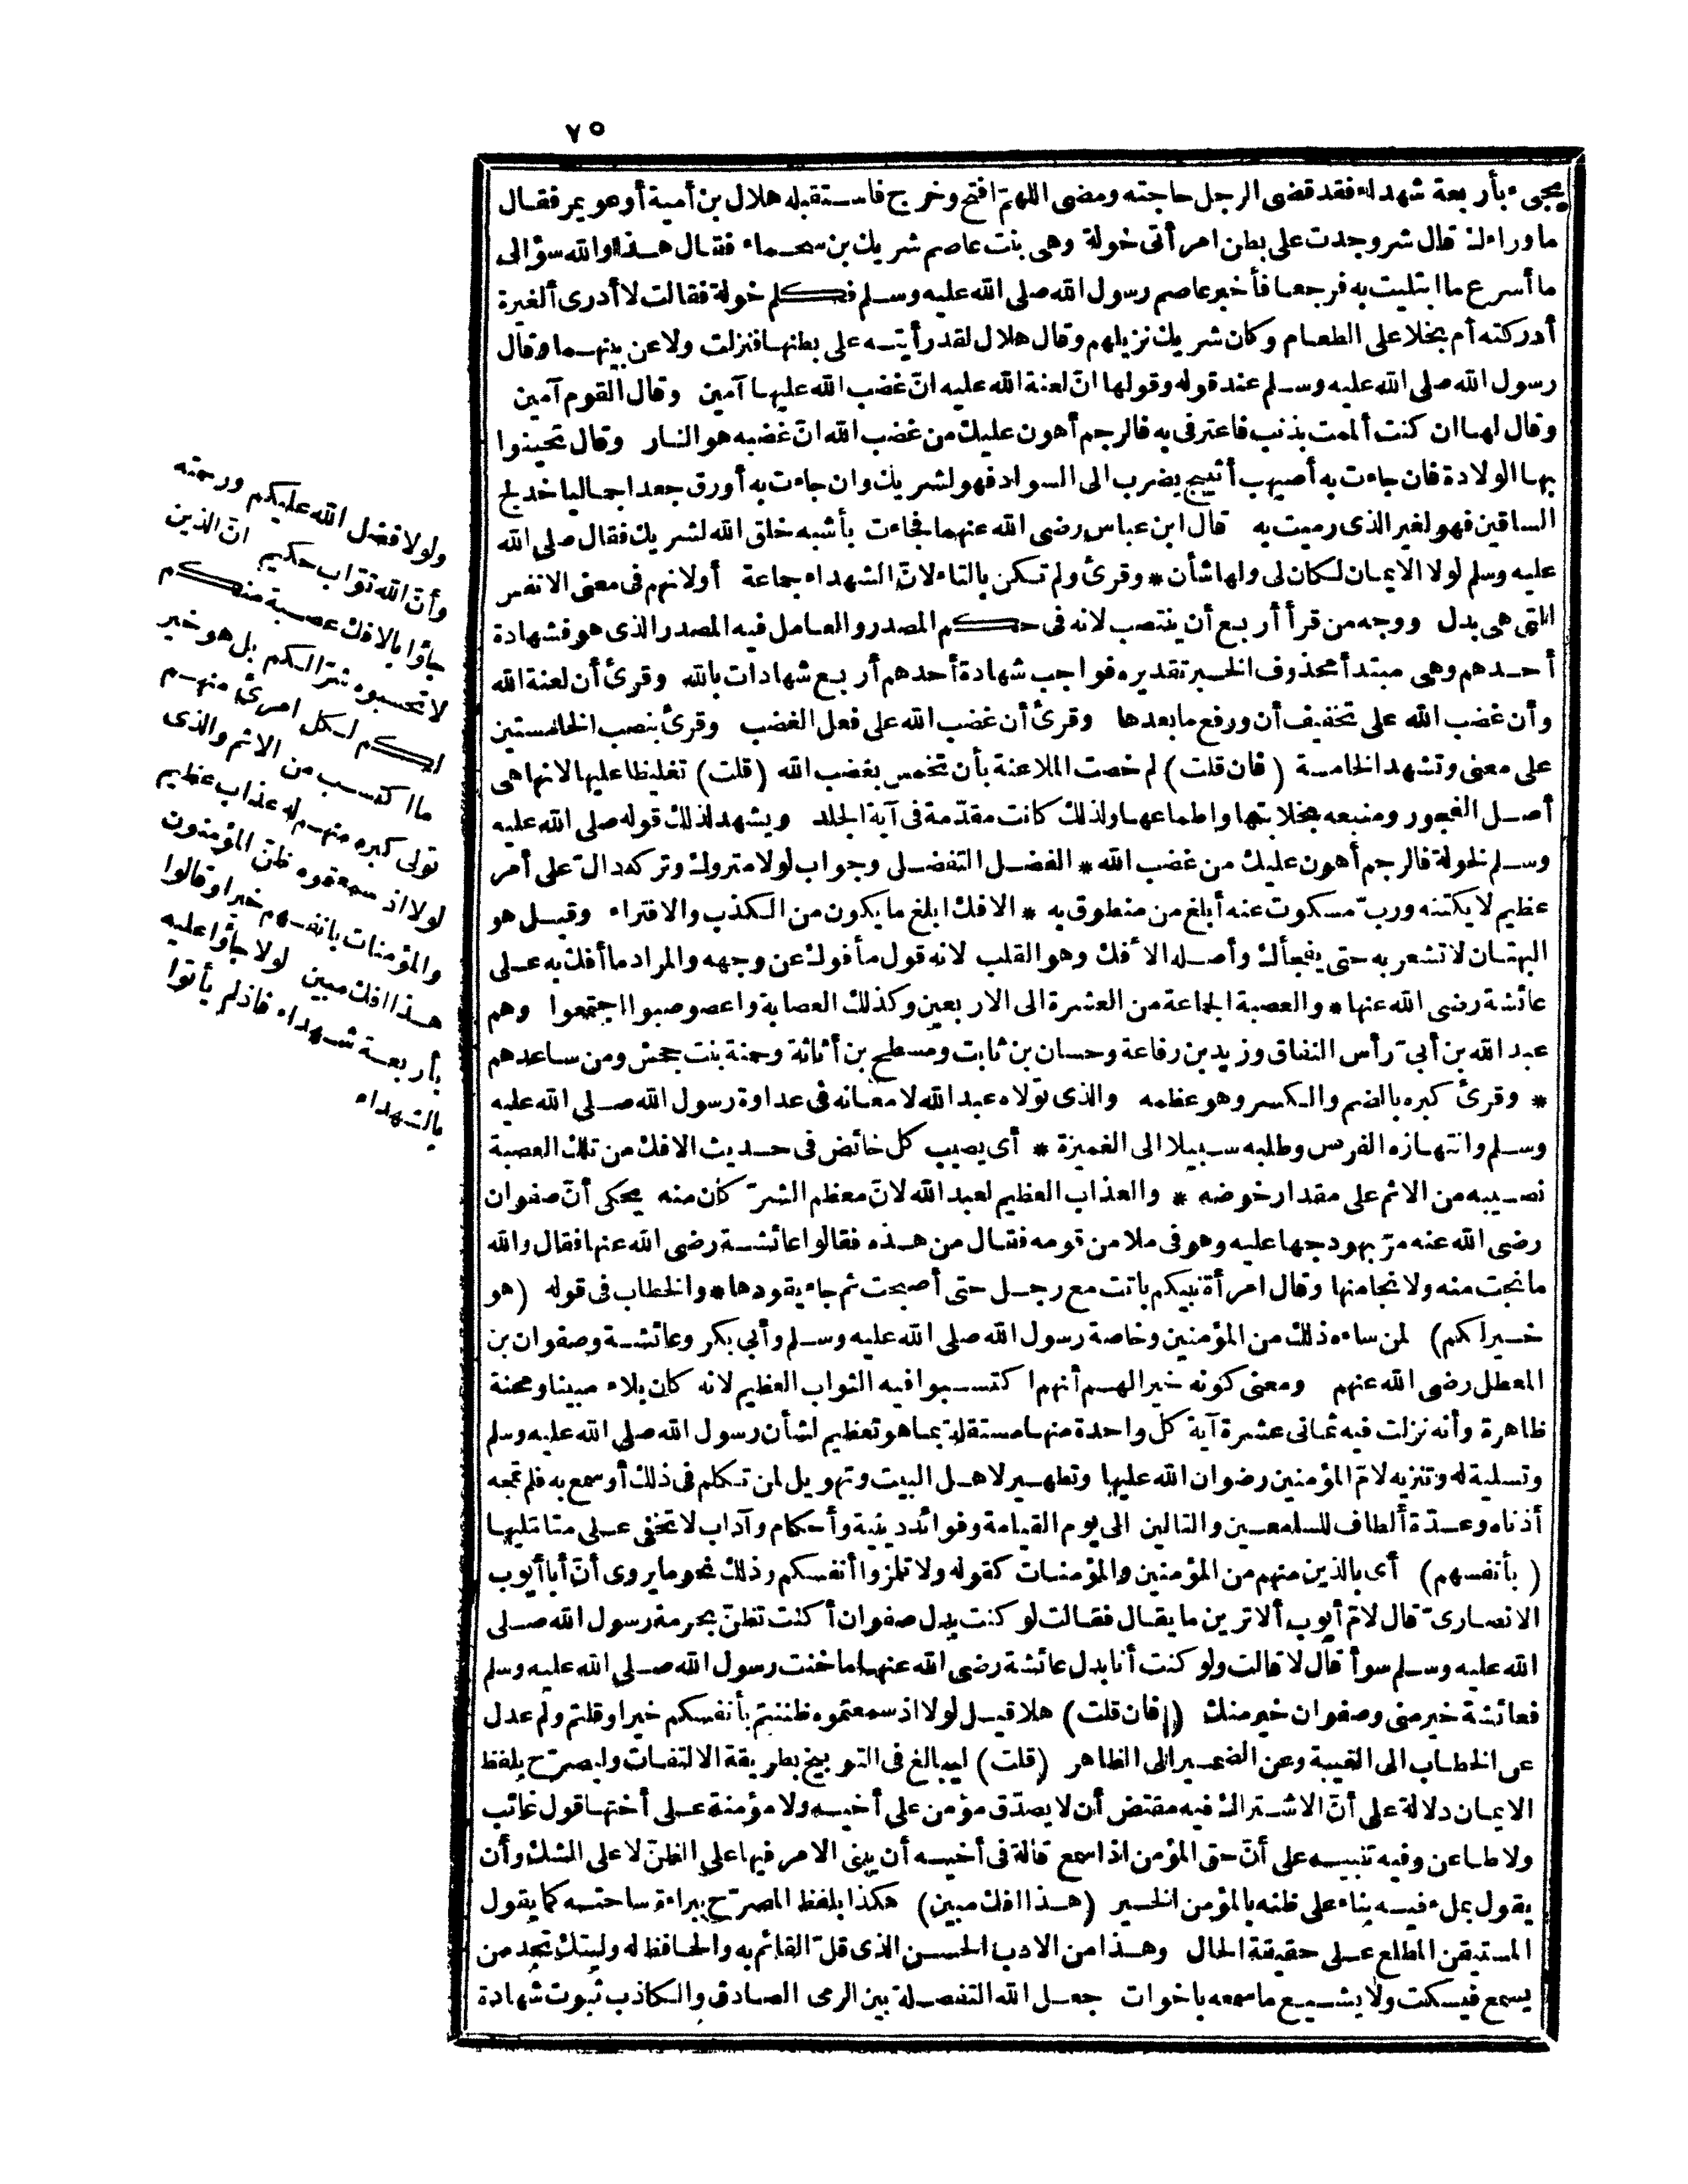 ٧٥
يجىء بأربعة شهداء فقد قضى الرجل حاجته ومضى اللهمّ افتح وخرج فاستقبله هلال بن أمية أو عويمر فقال
ما وراءك قال شر وجدت على بطن امرأتى خولة وهى بنت عاصم شريك بن سحماء فقال هذا والله سؤالى
ما أسرع ما ابتليت به فرجعا فأخبر عاصم رسول الله صلى الله عليه وسلم فكلم خولة فقالت لا أدرى ألغيرة
أدركته أم بخلا على الطعام وكان شريك نزيلهم وقال هلال لقد رأيته على بطنها فنزلت ولاعن بينهما وقال
رسول الله صلى الله عليه وسلم عند قوله وقولها انّ لعنة الله عليه انّ غضب الله عليها آمين وقال القوم آمين
وقال لها ان كنت ألممت بذنب فاعترفى به فالرجم أهون عليك من غضب الله انّ غضبه هو النار وقال تحينوا
بها الولادة فان جاءت به أصيهب أثيبج يضرب الى السواد فهو لشريك وان جاءت به أورق جعدا جماليا خدلج
الساقين فهو لغير الذى رميت به قال ابن عباس رضى الله عنهما فجاءت بأشبه خلق الله لشريك فقال صلى الله
عليه وسلم لولا الايمان لكان لى ولها شأن * وقرئ ولم تكن بالتاء لانّ الشهداء جماعة أو لانهم فى معنى الانفس
التى هى بدل ووجه من قرأ أربع أن ينتصب لانه فى حكم المصدر والعامل فيه المصدر الذى هو فشهادة
أحدهم وهى مبتدأ محذوف الخبر تقديره فواجب شهادة أحدهم أربع شهادات بالله وقرئ أن لعنة الله
وأن غضب الله على تخفيف أن ورفع ما بعدها وقرئ أن غضب الله على فعل الغضب وقرئ بنصب الخامستين
على معنى وتشهد الخامسة (فان قلت) لم خصت الملاعنة بأن تخمس بغضب الله (قلت) تغليظا عليها لانها هى
أصل الفجور ومنبعه بخلابتها واطماعها ولذلك كانت مقدّمة فى آية الجلد ويشهد لذلك قوله صلى الله عليه
وسلم لخولة فالرجم أهون عليك من غضب الله * الفضل التفضل وجواب لولا متروك وتركه دالّ على أمر
عظيم لا يكتنه وربّ مسكوت عنه أبلغ من منطوق به * الافك ابلغ ما يكون من الكذب والافتراء وقيل هو
البهتان لا تشعر به حتى يفجأك وأصله الأفك وهو القلب لانه قول مأفوك عن وجهه والمراد ما أفك به على
عائشة رضى الله عنها * والعصبة الجماعة من العشرة الى الاربعين وكذلك العصابة واعصوصبوا اجتمعوا وهم
عبد الله بن أبىّ رأس النفاق وزيد بن رفاعة وحسان بن ثابت ومسطح بن أثاثة وحمنة بنت جحش ومن ساعدهم
* وقرئ كبره بالضم والكسر وهو عظمه والذى تولاه عبد الله لامعانه فى عداوة رسول الله صلى الله عليه
وسلم وانتهازه الفرص وطلبه سبيلا الى الغميزة * أى يصيب كل خائض فى حديث الافك من تلك العصبة
نصيبه من الاثم على مقدار خوضه * والعذاب العظيم لعبد الله لانّ معظم الشرّ كان منه يحكى أنّ صفوان
رضى الله عنه مرّ بهودجها عليه وهو فى ملا من قومه فقال من هذه فقالوا عائشة رضى الله عنها فقال والله
ما نجت منه ولا نجا منها وقال امرأة نبيكم باتت مع رجل حتى أصبحت ثم جاء يقودها * والخطاب فى قوله (هو
خير لكم) لمن ساءه ذلك من المؤمنين وخاصة رسول الله صلى الله عليه وسلم وأبى بكر وعائشة وصفوان بن
المعطل رضى الله عنهم ومعنى كونه خيرا لهم أنهم اكتسبوا فيه الثواب العظيم لانه كان بلاء مبينا ومحنة
ظاهرة وأنه نزلت فيه ثمانى عشرة آية كل واحدة منها مستقلة بما هو تعظيم لشأن رسول الله صلى الله عليه وسلم
وتسلية له وتنزيه لامّ المؤمنين رضوان الله عليها وتطهير لاهل البيت وتهويل لمن تكلم فى ذلك أو سمع به فلم تمجه
أذناه وعدّة ألطاف للسامعين والتالين الى يوم القيامة وفوائد دينية وأحكام وآداب لا تخفى على متأمليها
(بأنفسهم) أى بالذين منهم من المؤمنين والمؤمنات كقوله ولا تلمزوا أنفسكم وذلك نحو ما يروى أنّ أبا أيوب
الانصارىّ قال لامّ أيوب ألا ترين ما يقال فقالت لو كنت بدل صفوان أكنت تظنّ بحرمة رسول الله صلى
الله عليه وسلم سوأ قال لا قالت ولو كنت أنا بدل عائشة رضى الله عنها ما خنت رسول الله صلى الله عليه وسلم
فعائشة خير منى وصفوان خير منك (فان قلت) هلا قيل لولا اذ سمعتموه ظننتم بأنفسكم خيرا وقلتم ولم عدل
عن الخطاب الى الغيبة وعن الضمير الى الظاهر (قلت) ليبالغ فى التوبيخ بطريقة الالتفات وليصرّح بلفظ
الايمان دلالة على أنّ الاشتراك فيه مقتض أن لا يصدّق مؤمن على أخيه ولا مؤمنة على أختها قول غائب
ولا طاعن وفيه تنبيه على أنّ حق المؤمن اذا سمع قالة فى أخيه أن يبنى الامر فيها على الظنّ لا على الشك وأن
يقول بملء فيه بناء على ظنه بالمؤمن الخير (هذا افك مبين) هكذا بلفظ المصرّح ببراءة ساحته كما يقول
المستيقن المطلع على حقيقة الحال وهذا من الادب الحسن الذى قلّ القائم به والحافظ له وليتك تجد من
يسمع فيسكت ولا يشيع ما سمعه باخوات جعل الله التفصلة بين الرمى الصادق والكاذب ثبوت شهادة
ولولا فضل الله عليكم ورحمته
وأنّ الله توّاب حكيم انّ الذين
جاؤا بالافك عصبة منكم
لا تحسبوه شرّا لكم بل هو خير
لكم لكل امرئ منهم
ما اكتسب من الاثم والذى
تولى كبره منهم له عذاب عظيم
لولا اذ سمعتموه ظنّ المؤمنون
والمؤمنات بانفسهم خيرا وقالوا
هذا افك مبين لولا جاؤا عليه
بأربعة شهداء فاذ لم يأتوا
بالشهداء